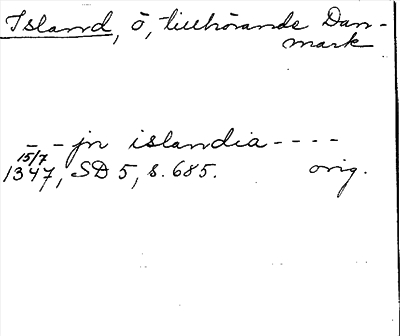 Island, ö, tillhörande Dan-
mark
- - jn islandia - - - -
15/7
1347, SD 5, s. 685. orig.